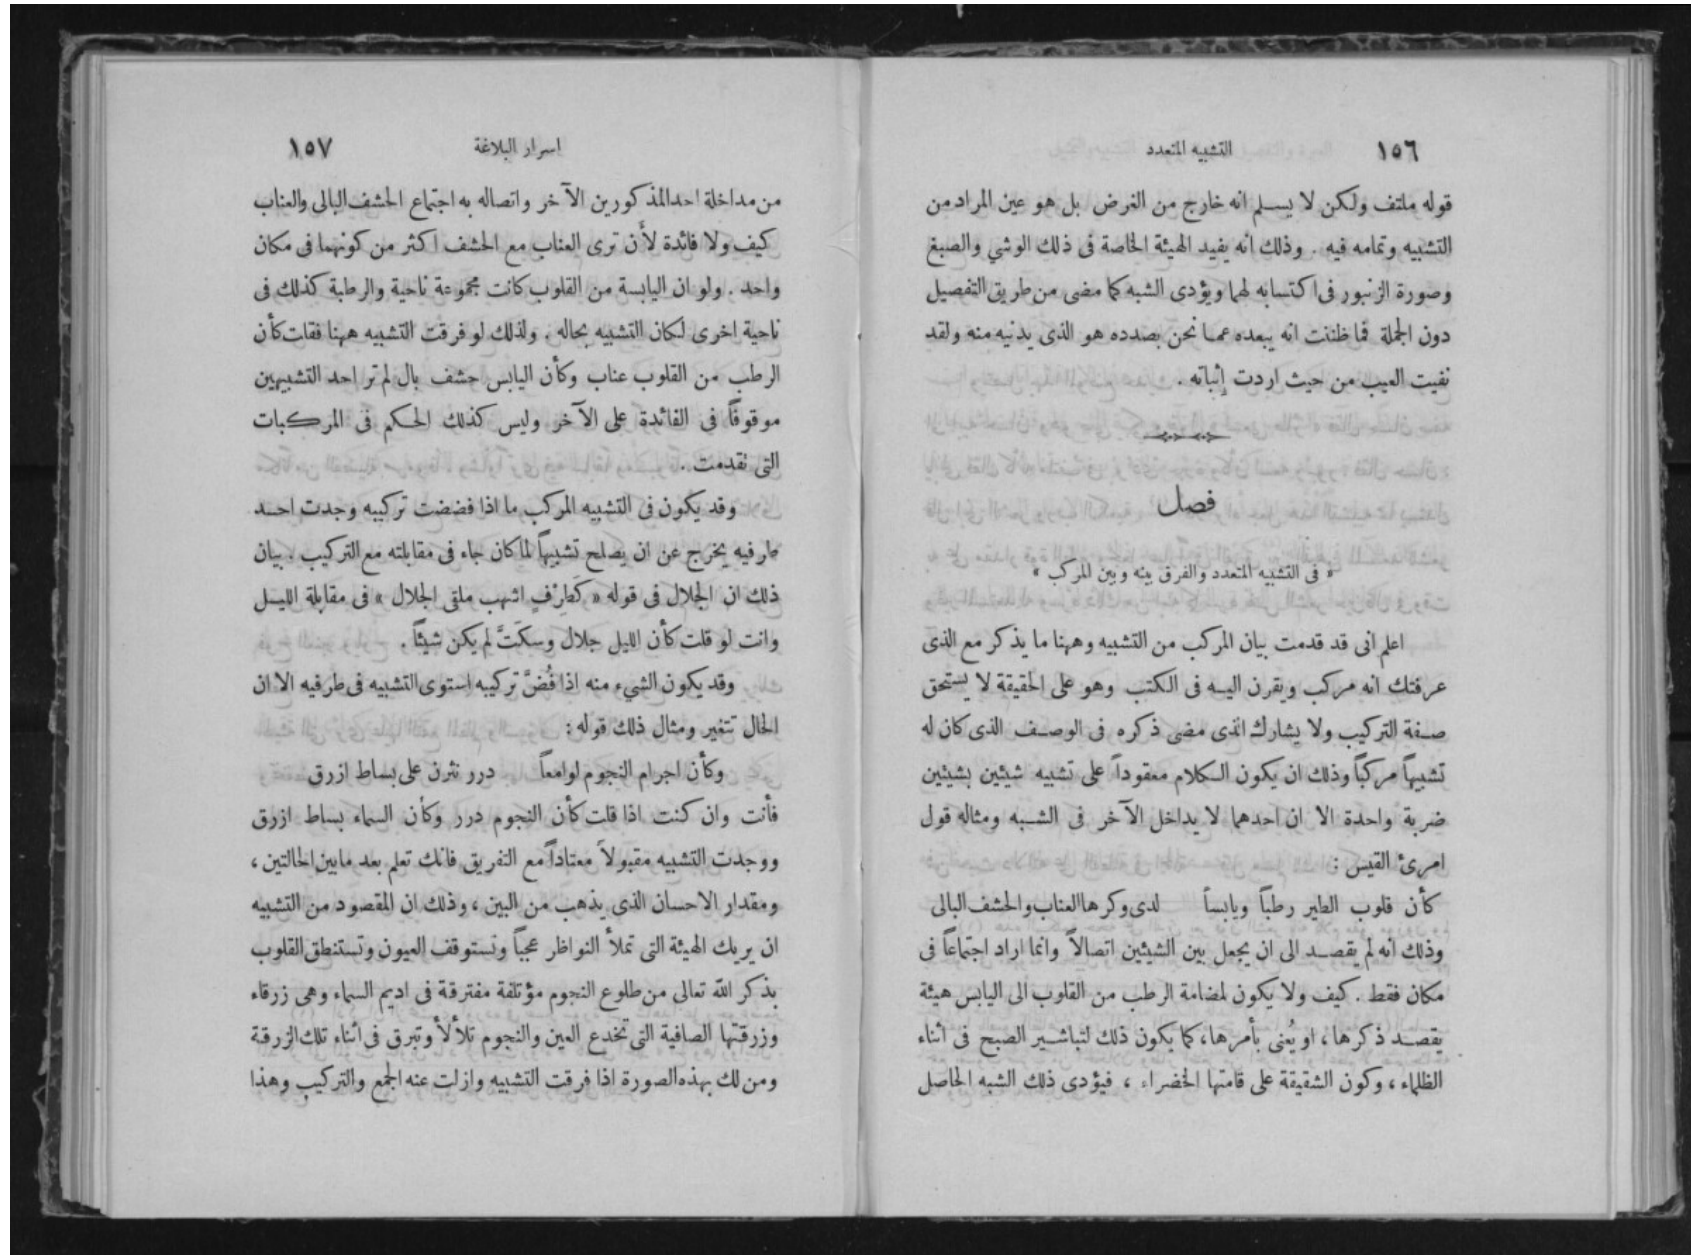 ١٥٦ التشبيه المتعدد
قوله ملتف ولكن لا يسلم انه خارج من الغرض بل هو عين المراد من
التشبيه وتمامه فيه . وذلك انه يفيد الهيئة الخاصة فى ذلك الوشي والصبغ
وصورة الزنبور فى اكتسابه لهما ويؤدى الشبه كما مضى من طريق التفصيل
دون الجملة فما ظننت انه يبعده عما نحن بصدده هو الذى يدنيه منه ولقد
نفيت العيب من حيث اردت إثباته .
فصل
« فى التشبيه المتعدد والفرق بينه وبين المركب »
اعلم انى قد قدمت بيان المركب من التشبيه وههنا ما يذكر مع الذى
عرفتك انه مركب ويقرن اليه فى الكتب وهو على الحقيقة لا يستحق
صفة التركيب ولا يشارك الذى مضى ذكره فى الوصف الذى كان له
تشبيهاً مركباً وذلك ان يكون الكلام معقوداً على تشبيه شيئين بشيئين
ضربة واحدة الا ان احدهما لا يداخل الآخر فى الشبه ومثاله قول
امرئ القيس :
كأن قلوب الطير رطباً ويابساً لدى وكرها العناب والحشف البالى
وذلك انه لم يقصد الى ان يجعل بين الشيئين اتصالاً وانما اراد اجتماعاً فى
مكان فقط . كيف ولا يكون لمضامة الرطب من القلوب الى اليابس هيئة
يقصد ذكرها ، او يُعنى بأمرها، كما يكون ذلك لتباشير الصبح فى اثناء
الظلماء ، وكون الشقيقة على قامتها الخضراء ، فيؤدى ذلك الشبه الحاصل
اسرار البلاغة ١٥٧
من مداخلة احد المذكورين الآخر واتصاله به اجتماع الحشف البالى والعناب
كيف ولا فائدة لأن ترى العناب مع الحشف اكثر من كونهما فى مكان
واحد . ولو ان اليابسة من القلوب كانت مجموعة ناحية والرطبة كذلك فى
ناحية اخرى لكان التشبيه بحاله . ولذلك لو فرقت التشبيه ههنا فقلت كأن
الرطب من القلوب عناب وكأن اليابس حشف بال لم تر احد التشبيهين
موقوفاً فى الفائدة على الآخر وليس كذلك الحكم فى المركبات
التى تقدمت .
وقد يكون فى التشبيه المركب ما اذا فضضت تركيبه وجدت احد
طرفيه يخرج عن ان يصلح تشبيهاً لما كان جاء فى مقابلته مع التركيب . بيان
ذلك ان الجلال فى قوله « كَطِرْفٍ اشهب ملقى الجلال » فى مقابلة الليل
وانت لو قلت كأن الليل جلال وسكَتَّ لم يكن شيئاً .
وقد يكون الشيء منه اذا فُضَّ تركيبه استوى التشبيه فى طرفيه الا ان
الحال تتغير ومثال ذلك قوله :
وكأن اجرام النجوم لوامعاً درر نثرن على بساط ازرق
فأنت وان كنت اذا قلت كأن النجوم درر وكأن السماء بساط ازرق
ووجدت التشبيه مقبولاً معتاداً مع التفريق فانك تعلم بعد ما بين الحالتين ،
ومقدار الاحسان الذى يذهب من البين ، وذلك ان المقصود من التشبيه
ان يريك الهيئة التى تملأ النواظر عجباً وتستوقف العيون وتستنطق القلوب
بذكر الله تعالى من طلوع النجوم مؤتلفة مفترقة فى اديم السماء وهى زرقاء
وزرقتها الصافية التى تخدع العين والنجوم تلألأ وتبرق فى اثناء تلك الزرقة
ومن لك بهذه الصورة اذا فرقت التشبيه وازلت عنه الجمع والتركيب وهذا